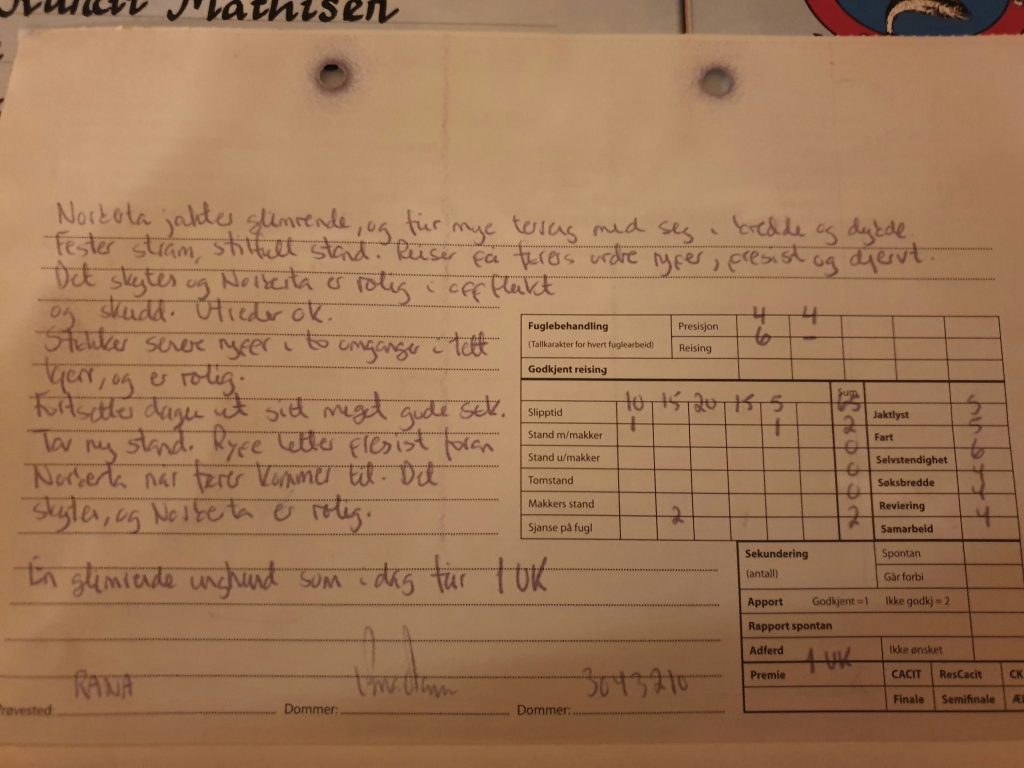 Mathisen
Norberta jakter glimrende, og får mye terreng med seg i bredde og dybde.
Fester stram, stilfull stand. Reiser på førers ordre ryper, presist og djervt.
Det skytes og Norberta er rolig i oppflukt
og skudd. Utreder ok.
Stikker senere ryper i to omganger i tett
kjerr, og er rolig.
Fortsetter dagen ut sitt meget gode søk.
Tar ny stand. Rype letter presist foran
Norberta når fører kommer til. Det
skytes, og Norberta er rolig.
En glimrende unghund som i dag får 1 UK
Fuglebehandling
(Tallkarakter for hvert fuglearbeid)
Presisjon 4 4
Reising 6 -
Godkjent reising
Sum
Slipptid 10 15 20 15 5 65
Stand m/makker 1 1 2
Stand u/makker 0
Tomstand 0
Makkers stand 0
Sjanse på fugl 2 2
Jaktlyst 5
Fart 5
Selvstendighet 6
Søksbredde 4
Reviering 4
Samarbeid 4
Sekundering
(antall)
Spontan
Går forbi
Apport Godkjent =1 Ikke godkj = 2
Rapport spontan
Adferd Ikke ønsket
Premie 1 UK CACIT ResCacit CK
Finale Semifinale
RANA 3043210
Prøvested: Dommer: Dommer: